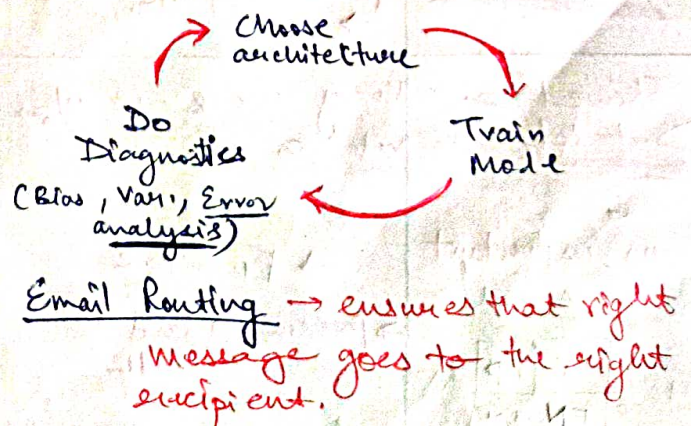 Choose
architecture
Train
Mode
Do
Diagnostics
(Bias, Var., Error
analysis)
Email Routing → ensures that right
message goes to the right
recipient.